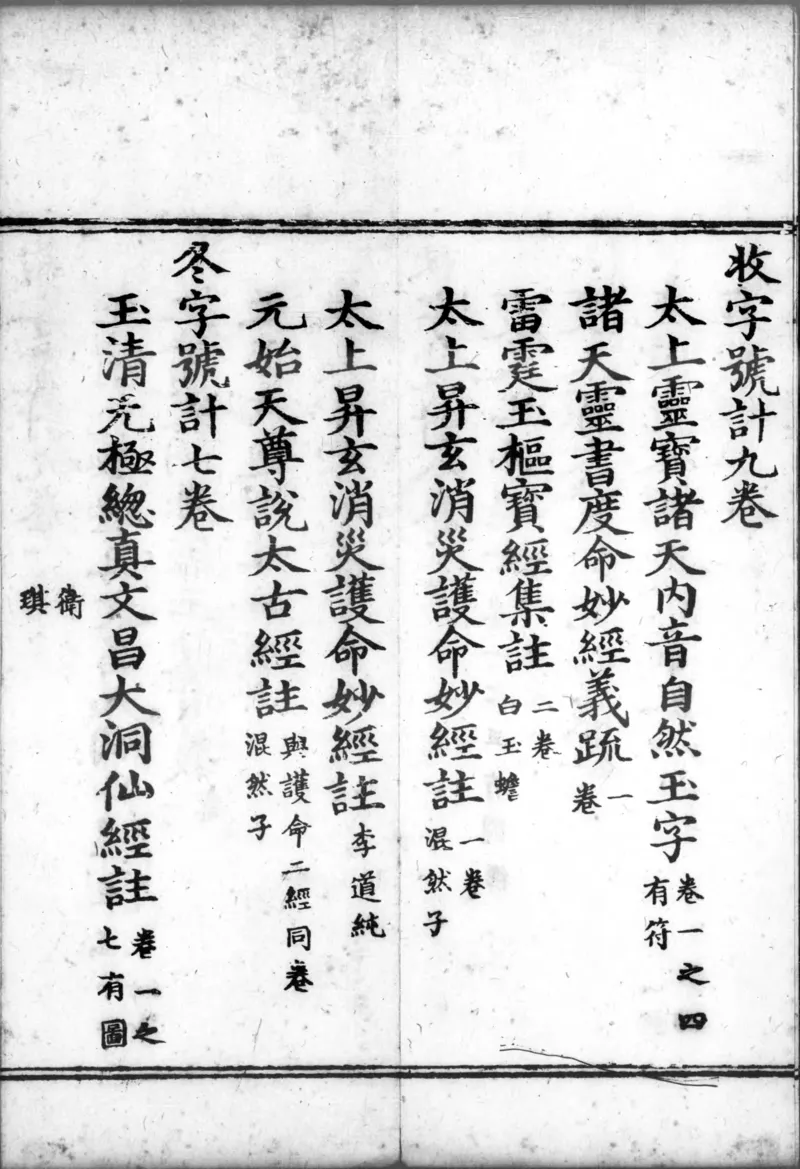 收字號計九卷
太上靈寶諸天内音自然玉字 卷一之四 有符
諸天靈書度命妙經義疏 一卷
雷霆玉樞寶經集註 二卷 白玉蟾
太上昇玄消災護命妙經註 一卷 混然子
太上昇玄消災護命妙經註 李道純
元始天尊說太古經註 與護命二經同卷 混然子
冬字號計七卷
玉清无極總真文昌大洞仙經註 卷一之七有圖
衛琪